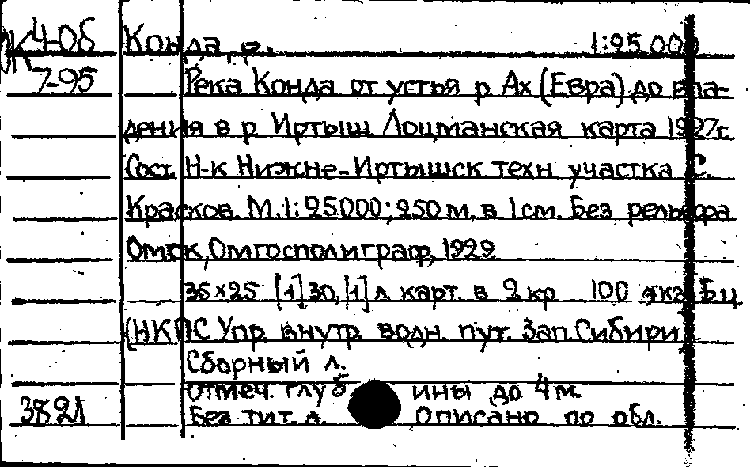 К 4-06 Конда, р. 1:25 000
7-95 Река Конда от устья р Ах (Евра) до впа-
дения в р Иртыш Лоцманская карта 1927г.
Сост. Н-к Нижне-Иртышск техн участка С.
Красков. М.1:25000; 250 м. в 1 см. Без рельефа
Омск, Омгосполиграф, 1929
36×25 [1] 30, [1] л карт. в 2 кр 100 экз Бц
(НКПС Упр. внутр. водн. пут. Зап. Сибири)
Сборный л.
Отмеч. глубины до 4 м.
3821 Без тит. л. Описано по обл.